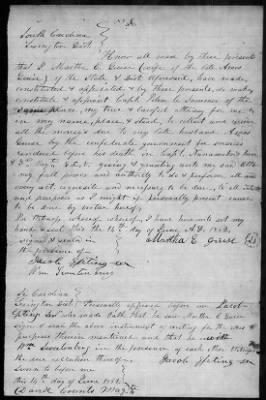 South Carolina
Lexington Dist.
Know all men by these presents
that I Martha E. Geese (wife of the late Amos
Geese) of the State & Dist aforesaid, have made,
constituted & appointed & by these presents, do make
constitute & appoint Capt. John C. Sumner of the
same place, my true & lawful attorney for me &
in my name, place & stead, to collect and receive
all the moneys due to my late husband Amos
Geese, by the confederate government for services
rendered before his death in Capt.
3d Regt. S.C.V. giving & granting unto my said atto
my full power and authority to do & perform all and
every act, requisite and necessary to be done, to all intents
and purposes as I might if personally present cause
to be done by virtue hereof.
In testimony whereof, I have unto set my
hand & seal this the 14th day of June A.D. 1862
signed & sealed in
the presence of
Martha E. Geese
Jacob
Wm
So Carolina
Lexington Dist. Personally appeared before me Jacob
who made oath that he saw Martha E. Geese
sign & seal the above instrument of writing for the uses &
purposes therein mentioned and that he with
Wm in the presence of each other witnessed
the due execution thereof
Sworn to before me
this 14th day of June 1862
David Counts Mag.